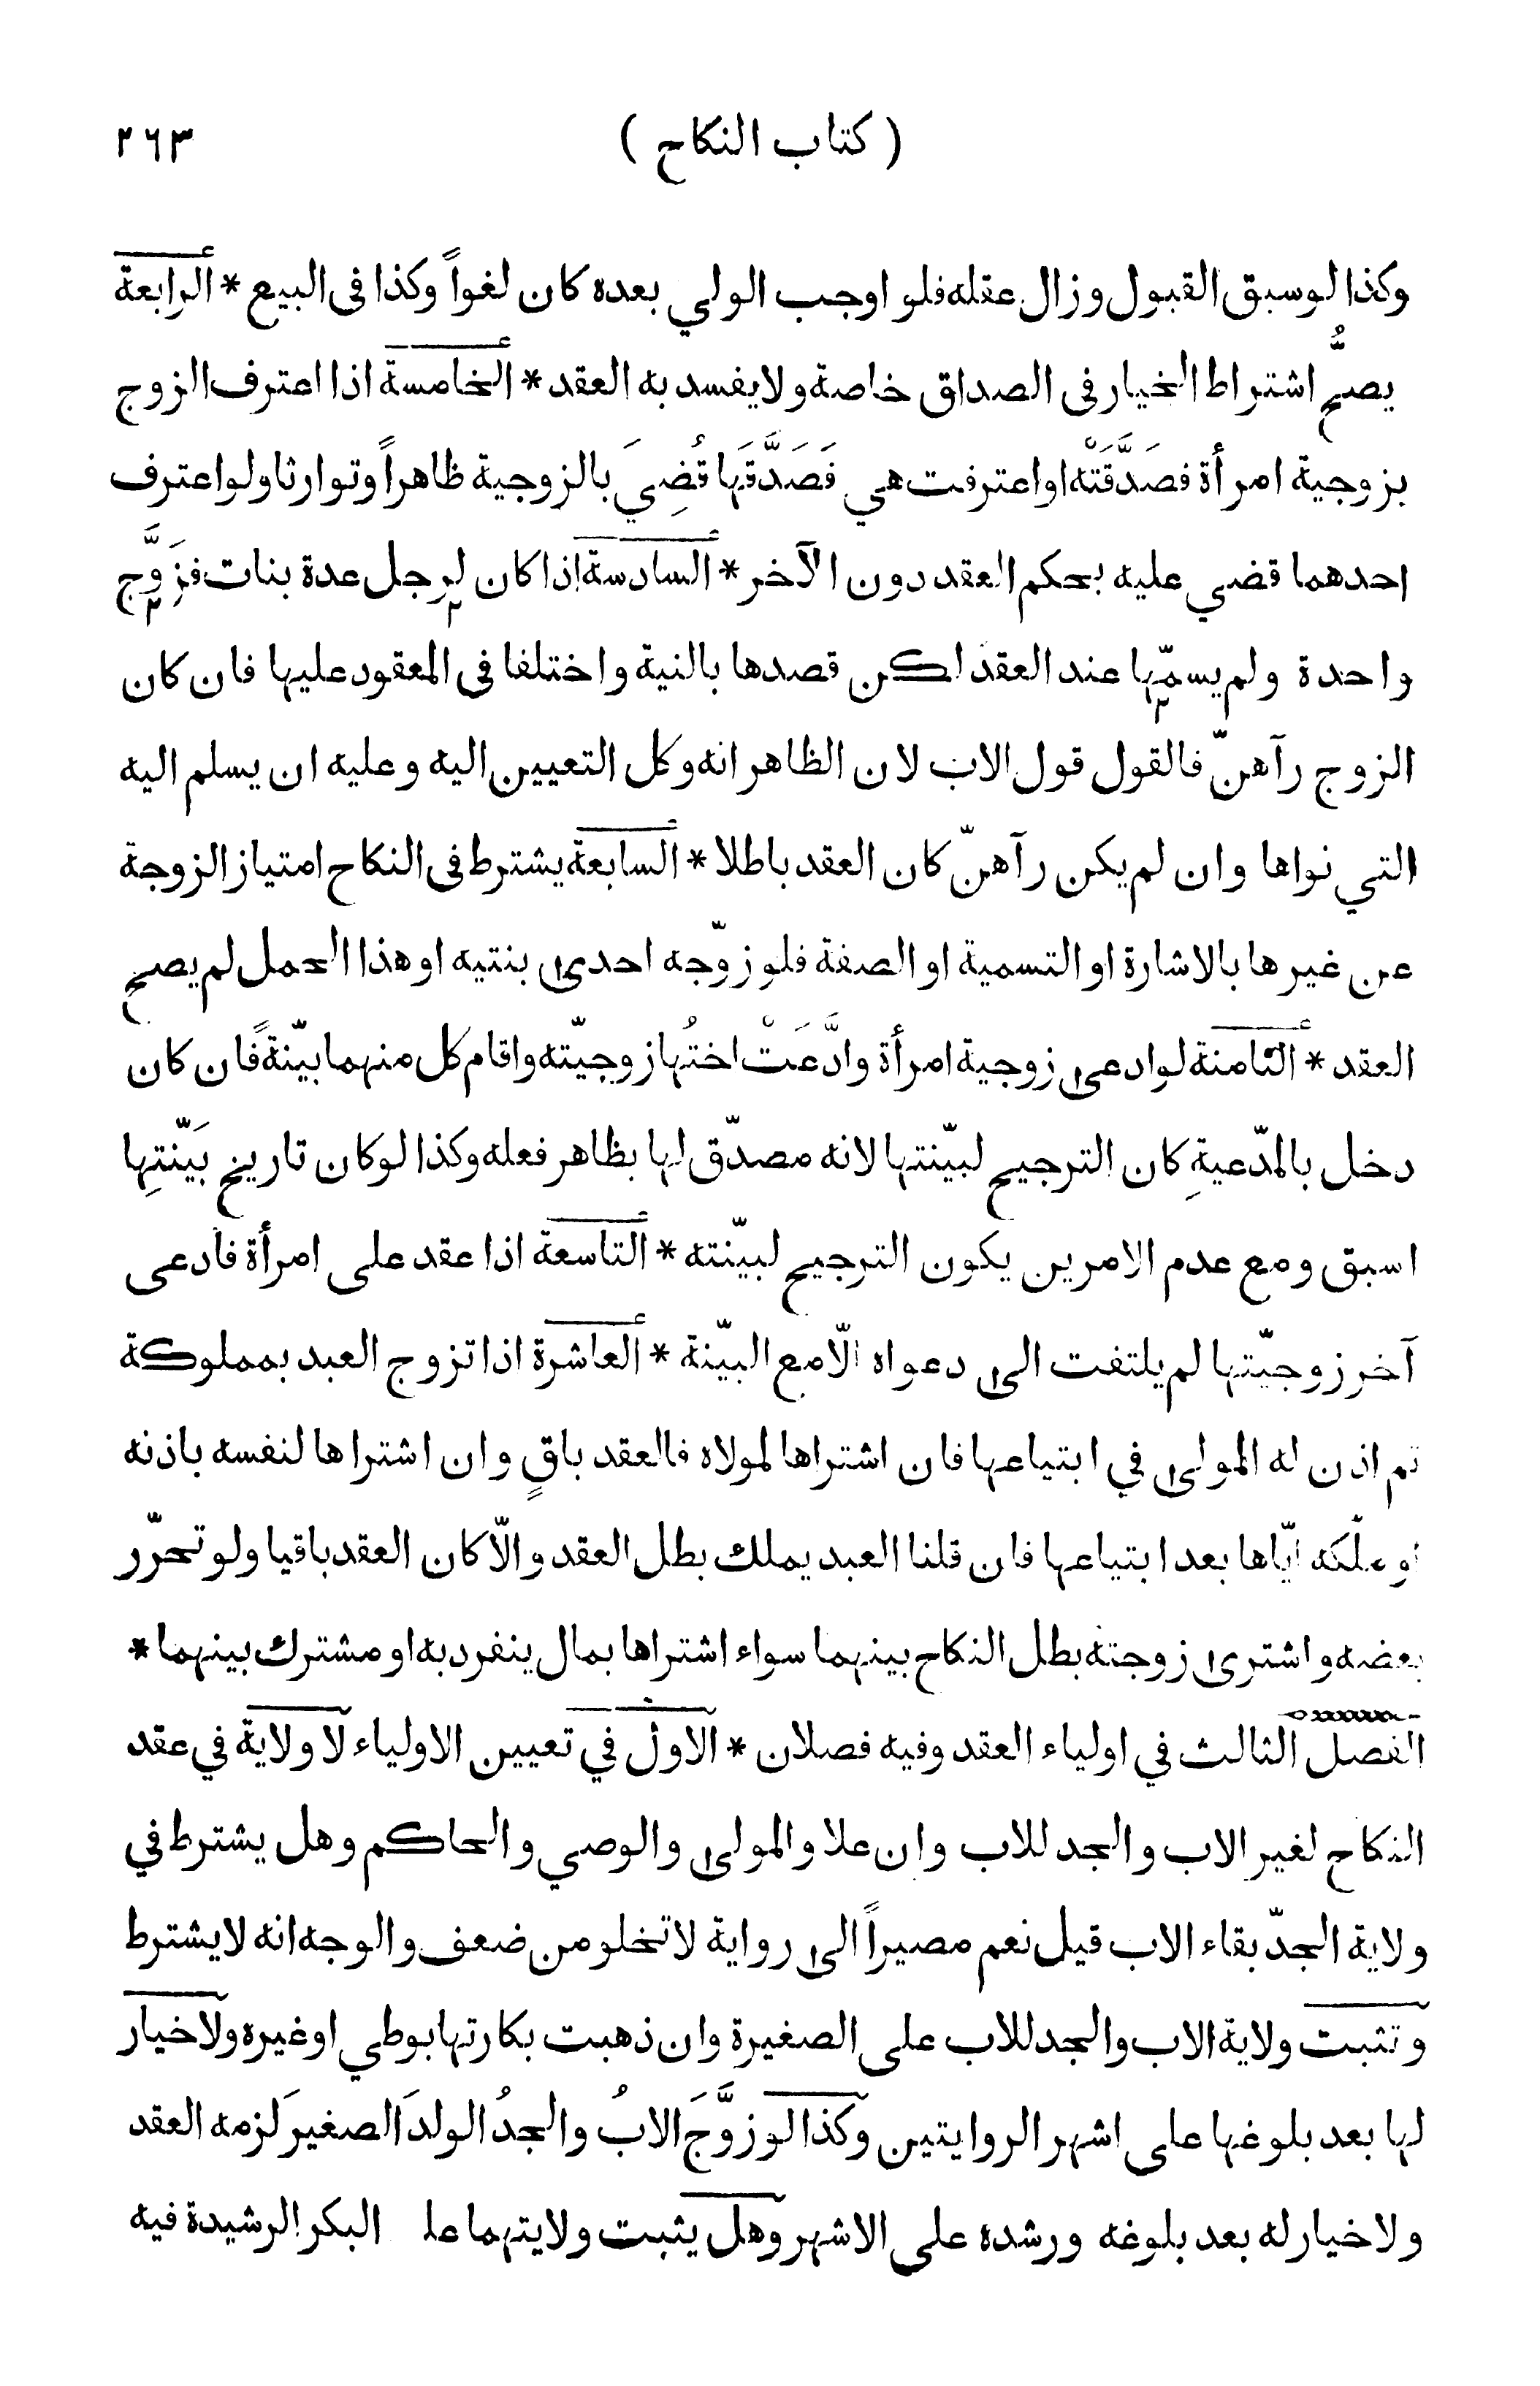 ( كتاب النكاح ) ٢٦٣
وكذا لو سبق القبول وزال عقله فلو اوجب الولي بعده كان لغواً وكذا فى البيع * الرابعة
يصحُّ اشتراط الخيار فى الصداق خاصة ولا يفسد به العقد * الخامسة اذا اعترف الزوج
بزوجية امرأة فصَدَّقَتْه او اعترفت هي فَصَدَّقَها قُضِيَ بالزوجية ظاهراً وتوارثا ولو اعترف
احدهما قضي عليه بحكم العقد دون الآخر * السادسة اذا كان لرجل عدة بنات فزَوَّج
واحدة ولم يسمّها عند العقد لكن قصدها بالنية واختلفا فى المعقود عليها فان كان
الزوج رآهنّ فالقول قول الاب لان الظاهر انه وكل التعيين اليه وعليه ان يسلم اليه
التي نواها وان لم يكن رآهنّ كان العقد باطلا * السابعة يشترط فى النكاح امتياز الزوجة
عن غيرها بالاشارة او التسمية او الصفة فلو زوّجه احدى بنتيه او هذا الحمل لم يصح
العقد * الثامنة لو ادعى زوجية امرأة وادَّعَتْ اختُها زوجيّته واقام كل منهما بيّنةً فان كان
دخل بالمدّعيةِ كان الترجيح لبيّنتها لانه مصدّق لها بظاهر فعله وكذا لو كان تاريخ بَيّنتِها
اسبق ومع عدم الامرين يكون الترجيح لبيّنته * التاسعة اذا عقد على امرأة فادعى
آخر زوجيّتها لم يلتفت الى دعواه الّا مع البيّنة * العاشرة اذا تزوج العبد بمملوكة
ثم اذن له المولى في ابتياعها فان اشتراها لمولاه فالعقد باقٍ وان اشتراها لنفسه باذنه
او ملّكه ايّاها بعد ابتياعها فان قلنا العبد يملك بطل العقد والّا كان العقد باقيا ولو تحرّر
بعضه واشترى زوجته بطل النكاح بينهما سواء اشتراها بمال ينفرد به او مشترك بينهما *
الفصل الثالث في اولياء العقد وفيه فصلان * الاول في تعيين الاولياء لا ولاية في عقد
النكاح لغير الاب والجد للاب وان علا والمولى والوصي والحاكم وهل يشترط في
ولاية الجدّ بقاء الاب قيل نعم مصيراً الى رواية لا تخلو من ضعف والوجه انه لا يشترط
وتثبت ولاية الاب والجد للاب على الصغيرة وان ذهبت بكارتها بوطي او غيره ولا خيار
لها بعد بلوغها على اشهر الروايتين وكذا لو زوَّجَ الابُ والجدُ الولدَ الصغيرَ لزمه العقد
ولا خيار له بعد بلوغه ورشده على الاشهر وهل يثبت ولايتهما علـ البكر الرشيدة فيه